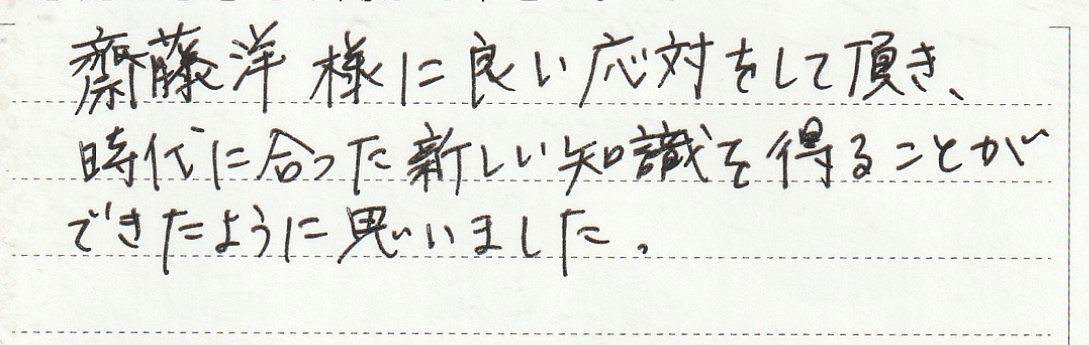 齋藤洋 様に良い応対をして頂き、
時代に合った新しい知識を得ることが
できたように思いました。